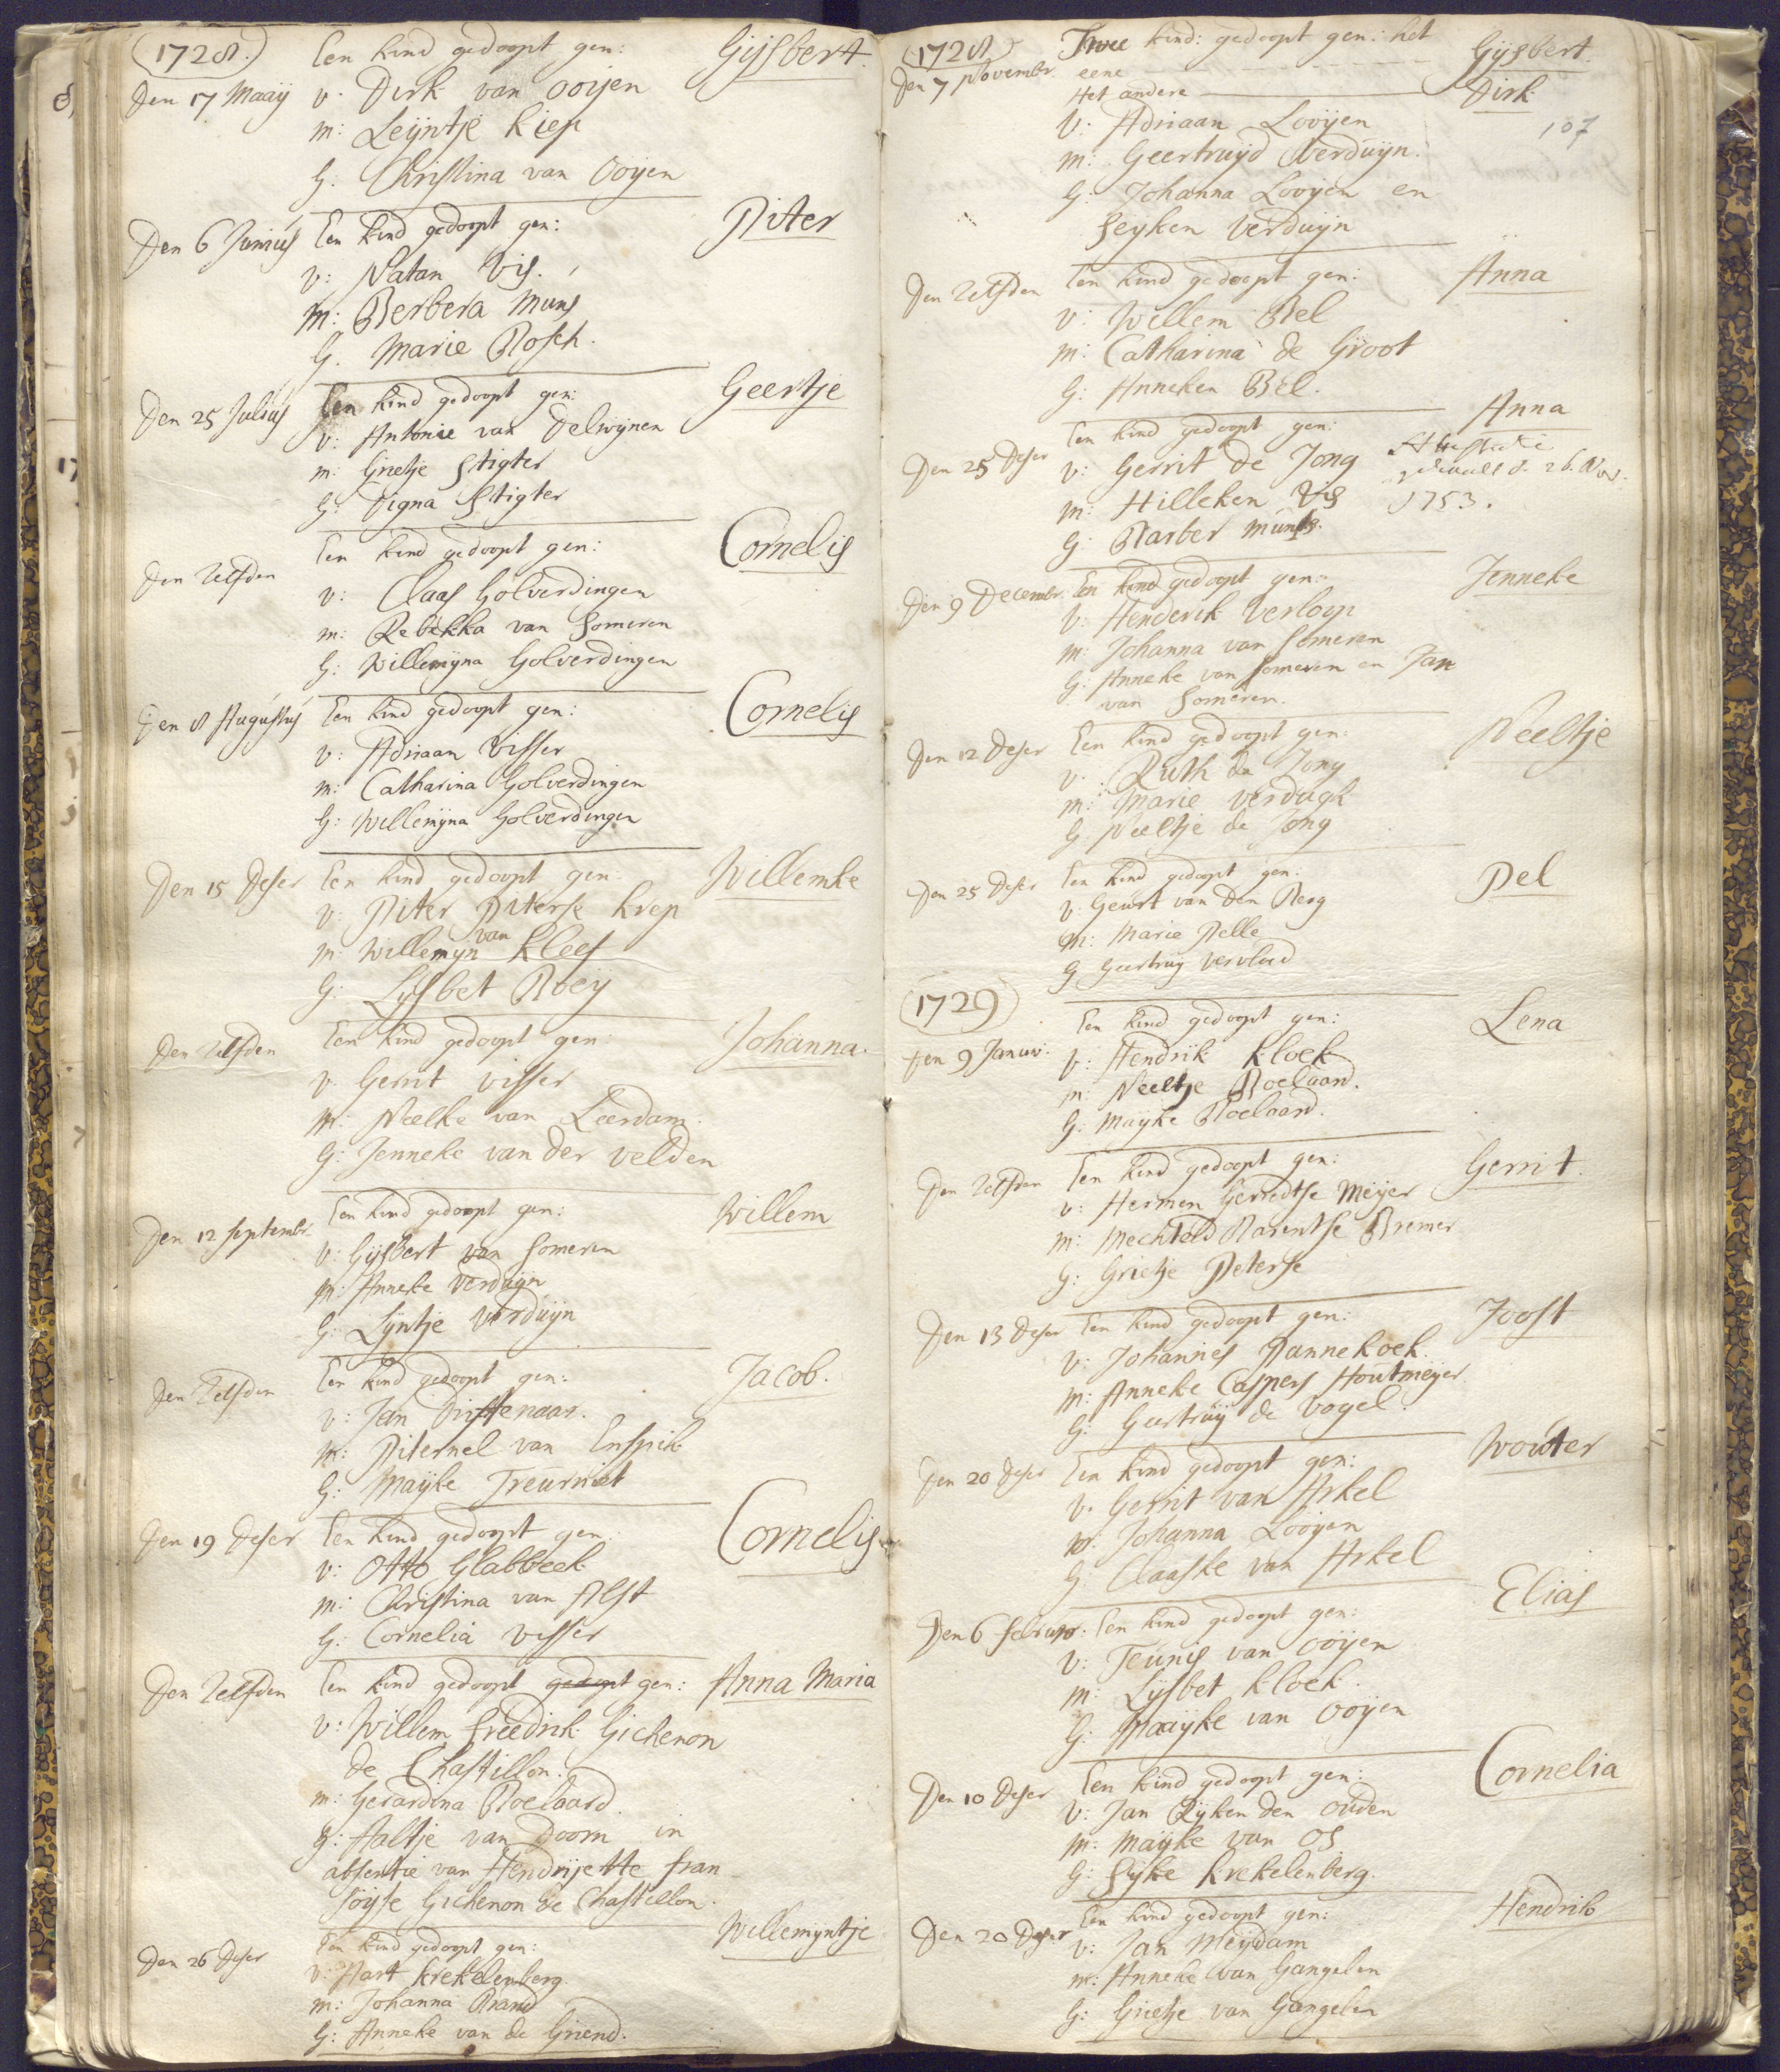 1728.
Een kind gedoopt gen: Gijsbert.
Den 17 Maaij v. Dirk van ooijen
m: Leijntje Kiep
G. Christina van Ooijen
Den 6 Junius Een kind gedoopt gen: Piter
v: Natan Vis.
m: Berbera Muns
G. Marie Bosch.
Den 25 Julius Een kind gedoopt gen: Geertje
v: Antonie van Delwijnen
m: Grietje Stigter
G: Digna Stigter
Den Zelfden Een kind gedoopt gen: Cornelis
v: Claas Golverdingen
m: Rebekka van Someren
G: Willemijna Golverdingen
Den 8 Augustus Een kind gedoopt gen: Cornelis
v: Adriaan Visser
m: Catharina Golverdingen
G: Willemijna Golverdingen
Den 15 Deser Een kind gedoopt gen: Willemke
v: Piter Piterse Krep
m: Willemijn van Kleef
G: Lijsbet Roeij
Den Zelfden Een kind gedoopt gen: Johanna.
v Gerrit Visser
m: Neelke van Leerdam.
G: Jenneke van der Velden
Den 12 Septembr. Een kind gedoopt gen: Willem
v: Gijsbert van Someren
m: Anneke Verduijn
G: Lijntje Verduijn
Den Zelfden Een kind gedoopt gen: Jacob.
v: Jan Driftenaar.
m: Piternel van Enspik
G: Maijke Treurniet
Den 19 Deser Een kind gedoopt gen. Cornelis
v: Otto Glabbeek
m: Christina van Alst
G: Cornelia Visser
Den Zelfden Een kind gedoopt gedoopt gen: Anna Maria
v: Willem Freedrik Gichenon
de Chastillon.
m: Gerardina Roelaard.
g: Aaltje van Doorn in
absentie van Hendrijette fran
soijse Gichenon de Chastillon.
Den 26 Deser Een kind gedoopt gen: Willemijntje
v: Aart Krekelenberg.
m: Johanna Brand
G: Anneke van de Griend.
1728
Twee kind: gedoopt gen: het
Den 7 Novembr. eene Gijsbert.
Het andere Dirk
107
V: Adriaan Looijen
m: Geertruijd Verduijn.
G: Johanna Looijen en
Seijken Verduijn
Den Zelfden Een kind gedoopt gen: Anna
v: Willem Bel
m: Catharina de Groot
G: Anneken Bel.
Den 25 Deser Een kind gedoopt gen: Anna
v: Gerrit de Jong
m: Hilleken Vis
G: Barber Muns.
Attestatie
26. Nov:
1753.
Den 9 Decembr. Een kind gedoopt gen: Jenneke
v: Henderik Verloop
m: Johanna van Someren
G: Anneke van Someren en Jan
van Someren.
Den 12 Deser Een kind gedoopt gen: Neeltje
v: Ruth de Jong
m: Marie Verdugh
G Neeltje de Jong
Den 25 Deser Een kind gedoopt gen: Pel
v: Geurt van den Berg
m: Marie Pelle
G Geertruij Vervloed
1729
Een kind gedoopt gen: Lena
Den 9 Januar: v: Hendrik Kloek
m: Neeltje Roelaard.
G: Maijke Roelaard.
Den Zelfden Een kind gedoopt gen: Gerrit.
v: Hermen Gerredtse Meijer
m: Mechteld Barentse Bremer
G: Grietje Peterse
Den 13 Deser Een kind gedoopt gen: Joost
v: Johannes Pannekoek.
m: Anneke Caspers Houtmeijer
G: Geertruij de Vogel.
Den 20 Deser Een kind gedoopt gen: Wouter
v. Gerrit van Arkel
m: Johanna Looijen
G Claaske van Arkel
Den 6 Februar: Een kind gedoopt gen: Elias
v: Teunis van Ooijen
m: Lijsbet Kloek.
G: Maaijke van Ooijen
Den 10 Deser Een kind gedoopt gen: Cornelia
v: Jan Rijken den Ouden
m: Maijke van Os
G: Sijke Krekelenberg.
Den 20 Deser Een kind gedoopt gen: Hendrik
v: Jan Meijdam
m: Anneke van Gangelen
G: Grietje van Gangelen